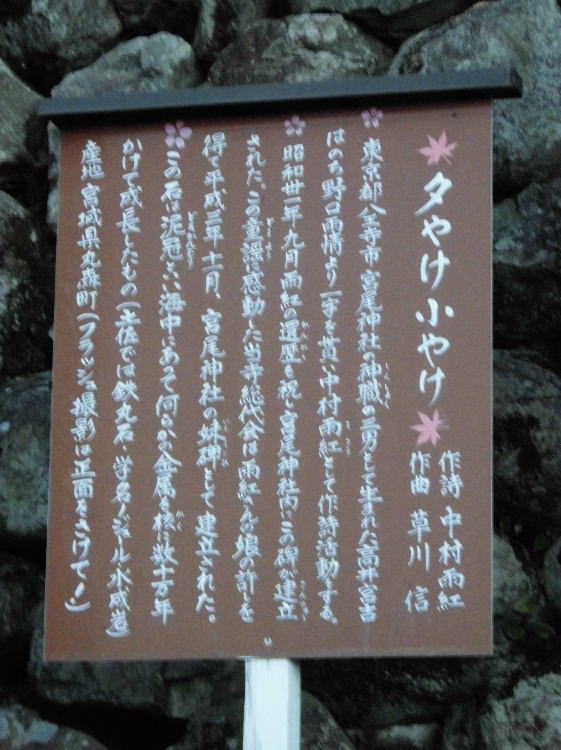 夕やけ小やけ
作詩 中村雨紅
作曲 草川 信
東京都八王子市 宮尾神社の神職の三男として生まれた高井宮吉
はのち野口雨情より一字を貰い中村雨紅として作詩活動をする。
昭和卅一年九月雨紅の還暦を祝い宮尾神社内にこの碑が建立
された。この童謡に感動した当寺総代会は雨紅さんの娘の許しを
得て平成三年十一月、宮尾神社の妹碑として建立された。
この石は泥冠といい海中にあって何らか金属を核に数十万年
かけて成長したもの(土佐では鉄丸石・学名ノジュール水成岩)
産地 宮城県丸森町(フラッシュ撮影は正面をさけて!)